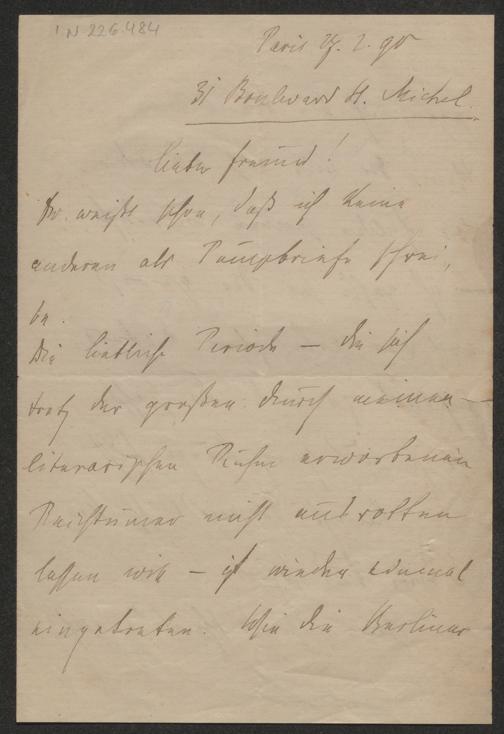 IN 226.484
Paris 27. 2. 90
31 Boulevard St. Michel.
Lieber Freund!
Du weißt schon, daß ich keine
anderen als Pumpbriefe schrei,
be.
Die liebliche Periode — die sich
trotz der großen durch meinen
literarischen Ruhm erworbenen
Reichtümer nicht ausrotten
lassen will — ist wieder einmal
eingetreten. Wie die Berliner